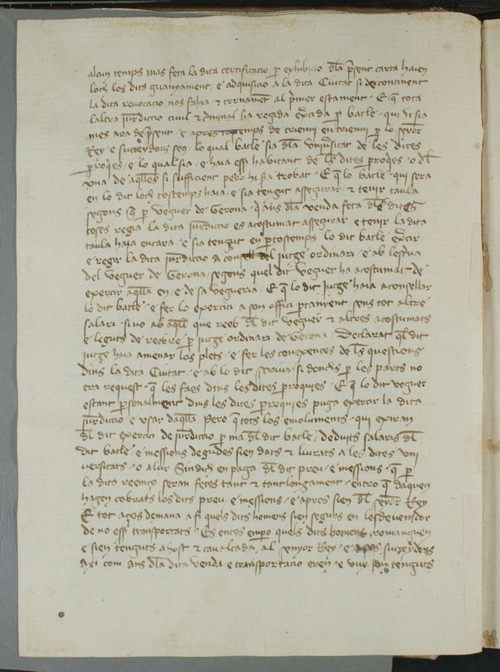 alcun temps mas feta la dita certificacio p exhibicio dla psent carta haven
loch los dits guanyament e adquisicio a la dita Ciutat si decontinent
la dita revocacio nos fahia e tornament al primer estament E q tota
laltra jurdiccio civil e criminal sia regida exercida p batle qui vi sia
mes ara de psent e apres de temps de trienni en trienni p lo senyor
Rey e succehidors seus lo qual batle sia dla universitat de les dites
proqies e lo qual sia e haia esser habitant de les dites proqies o dl
una de aqlles si sufficient pero hi sia trobat E q lo batle qui sera
en lo dit loch tostemps haia e sia tengut assegurar e tenir taula
segons q p veguer de Gerona q ans dla venda feta dl dites
coses regia la dita jurdiccio es acostumat assegurar e tenir la dita
taula haia encara e sia tengut en ptostemps lo dit batle exercir
e regir la dita jurdiccio a consell del jutge ordinari e ab lescriva
del veguer de Gerona segons quel dit veguer ha acostumat de
exercir aqlla en e de sa vegueria E q lo dit jutge haia aconsellar
lo dit batle e fer lo exercici a son offici ptanyent sens tot altre
salari sino ab aqll que reeb dl dit veguer e altres acostumats
e leguts de reebre p jutge ordinari de Gerona Declarat ql dit
jutge haia amenar los plets e fer les conexences de les questions
dins la dita Ciutat e ab lo dit scriva si donchs p les parts no
era request q les faes dins les dites proquies E q lo dit veguer
estant psonalment dins les dites proquies puga exercir la dita
jurdiccio e usar daqlla Pero q tots los emoluments qui exiran
dl dit exercici de jurdiccio p ma dl dit batle deduits salaris dl
dit batle e messions degudes sien dats e liurats a les dites uni
versitats o a lur Sindich en paga dl dit preu e messions q p
la dita reenço seran fetes tant e tant longament entro q daquen
hagen cobrats los dits preu e messions e apres sien dl senyor Rey
E tot aços demana a fi quels dits homens sien segurs en lesdevenidor
de no esser transportats E es entes empo quels dits homens romanguen
e sien tenguts a host e cavalcada al senyor Rey e succehidors
axi com ans dla dita venda e transportacio eren e vuy son tenguts